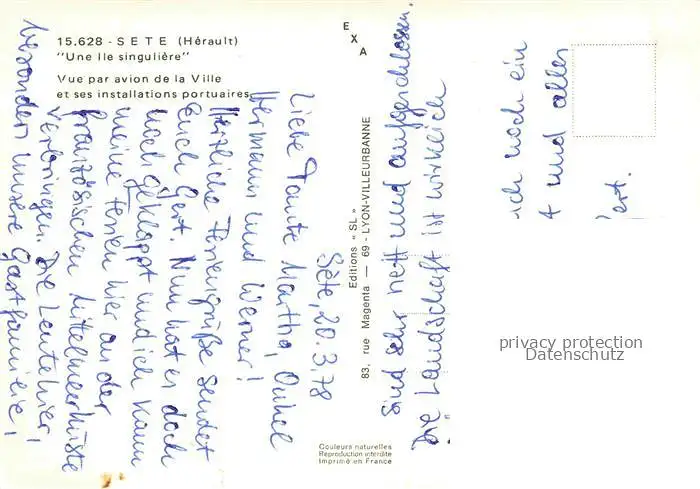 15.628 - SETE (Hérault)
"Une Ile singulière"
Vue par avion de la Ville
et ses installations portuaires
EXA
Editions "SL"
83, rue Magenta — 69 - LYON-VILLEURBANNE
Couleurs naturelles
Reproduction interdite
Imprimé en France
Sète, 20.3.78
Liebe Tante Martha, Onkel
Hermann und Werner!
Herzliche Feriengrüße sendet
Euch Gert. Nun hat es doch
noch geklappt und ich kann
meine Ferien hier an der
französischen Mittelmeerküste
verbringen. Die Leute hier,
besonders unsere Gastfamilie,
sind sehr nett und aufgeschlossen.
Die Landschaft ist wirklich
ich noch ein
und alles
privacy protection
Datenschutz